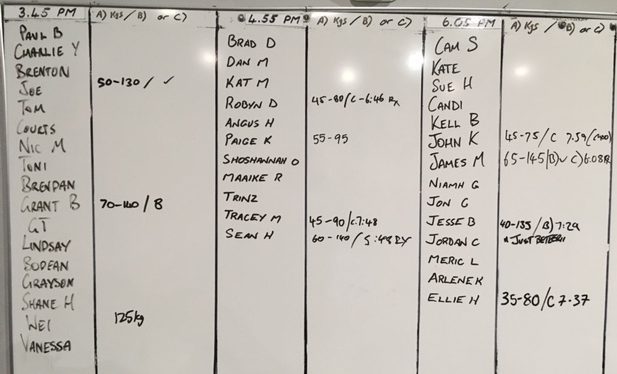 3.45 PM A) Kgs / B) or C)
PAUL B
CHARLIE Y
BRENTON
JOE 50-130 / ✓
TOM
COURTS
NIC M
TONI
BRENDAN
GRANT B 70-140 / B
GT
LINDSAY
BODEAN
GRAYSON
SHANE H
WEI 125kg
VANESSA
4.55 PM A) Kgs / B) or C)
BRAD D
DAN M
KAT M
ROBYN D 45-80/C-6:46 Rx
ANGUS H
PAIGE K 55-95
SHOSHANNAH O
MAAIKE R
TRINZ
TRACEY M 45-90/C7:48
SEAN H 60-140/ 5:48 RX
6.05 PM A) Kgs / B) or C)
CAM S
KATE
SUE H
CANDI
KELL B
JOHN K 45-75/C 7.59
JAMES M 65-145/B)✓ C)6.08
NIAMH G
JON G
JESSE B 40-135/B)7:29
JORDAN C JUST BETTER!!
MERIC L
ARLENE K
ELLIE H 35-80/C 7-37